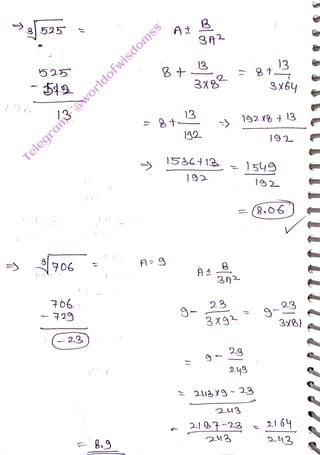 ⇒ ∛525 = A ± B/3A²
525
- 512
13
8 + 13/3×8² = 8 + 13/3×64
= 8 + 13/192 ⇒ 192×8 + 13/192
⇒ 1536+13/192 = 1549/192
= 8.06 ✓
Telegram : @worldofwisdomss
⇒ ∛706 = A = 9 A ± B/3A²
706
- 729
-23
9 - 23/3×9² = 9 - 23/3×81
= 9 - 23/243
= 243×9 - 23/243
= 2187-23/243 = 2164/243
= 8.9